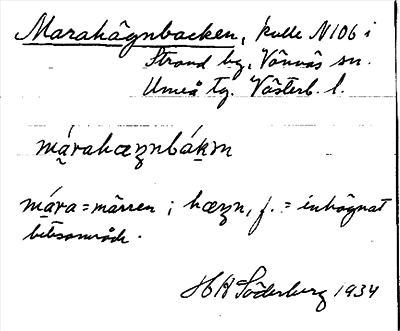 Marahägnbacken, kulle N106 i
Strand by, Vännäs sn.
Umeå tg. Västerb. l.
márahæznbákm
mára = märren ; hæzn, f. = inhägnat
betesområde.
H B Söderberg 1934